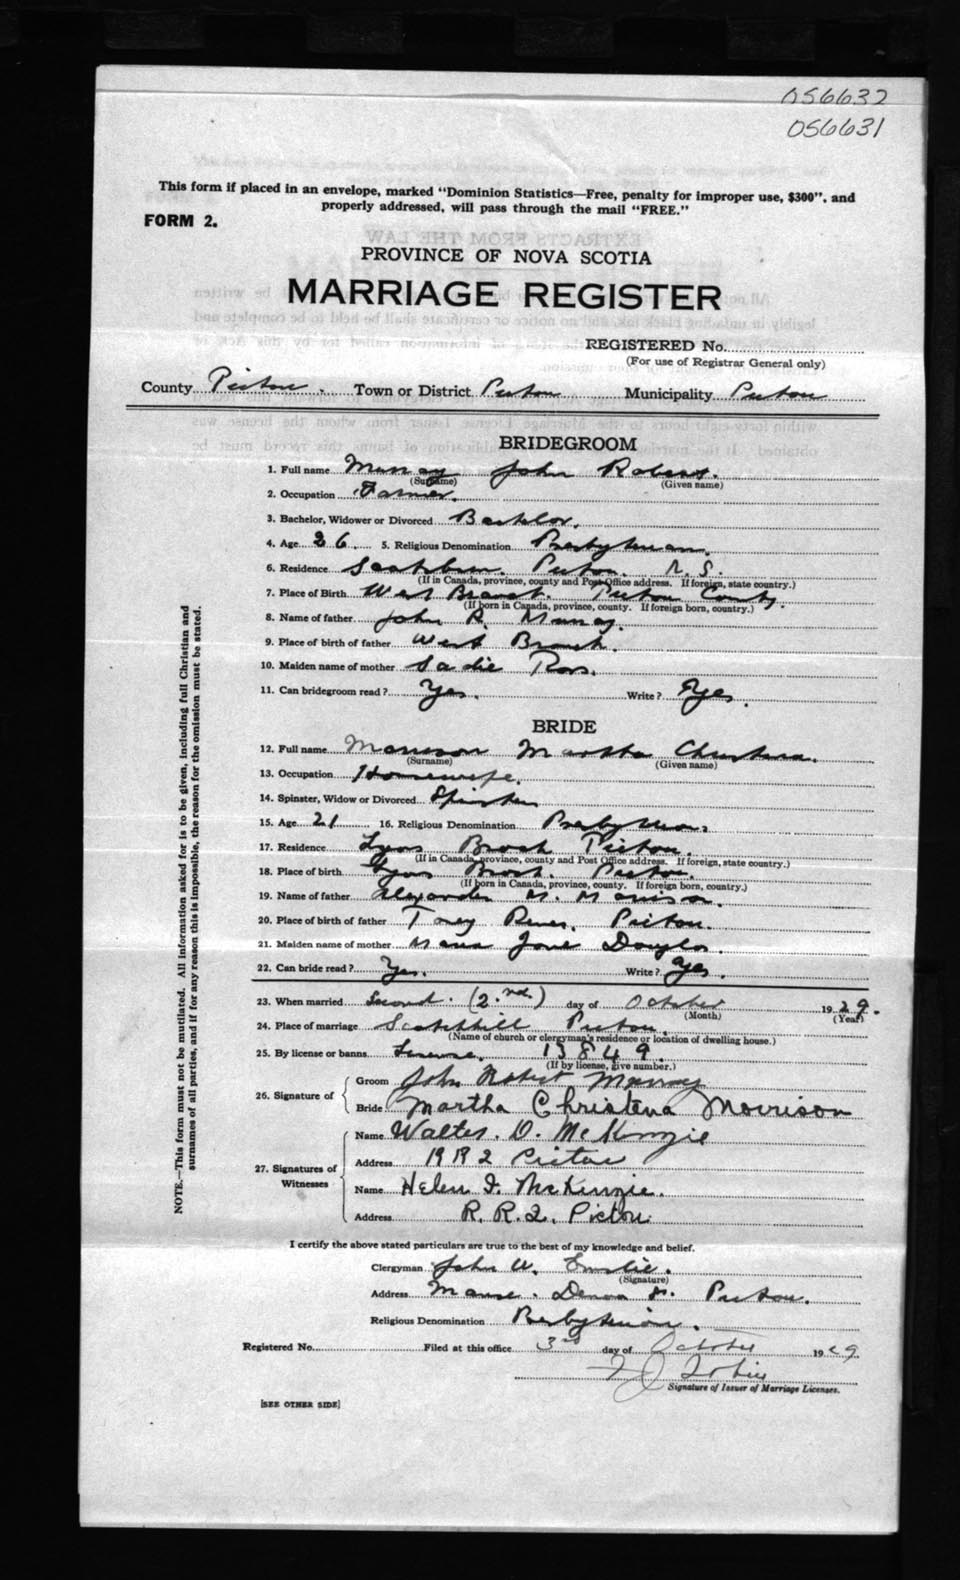 056632
056631
This form if placed in an envelope, marked "Dominion Statistics—Free, penalty for improper use, $300", and
properly addressed, will pass through the mail "FREE."
FORM 2.
PROVINCE OF NOVA SCOTIA
MARRIAGE REGISTER
REGISTERED No.
(For use of Registrar General only)
County Pictou. Town or District Pictou Municipality Pictou
BRIDEGROOM
1. Full name Murray John Robert.
(Surname) (Given name)
2. Occupation Farmer.
3. Bachelor, Widower or Divorced Bachelor.
4. Age 26. 5. Religious Denomination Presbyterian.
6. Residence Pictou. N.S.
(If in Canada, province, county and Post Office address. If foreign, state country.)
7. Place of Birth West Branch. Pictou County.
(If born in Canada, province, county. If foreign born, country.)
8. Name of father John R. Murray.
9. Place of birth of father West Branch.
10. Maiden name of mother Sadie Ross.
11. Can bridegroom read? Yes. Write? Yes.
BRIDE
12. Full name Morrison Martha Christena.
(Surname) (Given name)
13. Occupation Housewife.
14. Spinster, Widow or Divorced Spinster
15. Age 21 16. Religious Denomination Presbyterian.
17. Residence Lyons Brook Pictou.
(If in Canada, province, county and Post Office address. If foreign, state country.)
18. Place of birth Lyons Brook. Pictou.
(If born in Canada, province, county. If foreign born, country.)
19. Name of father Alexander M. Morrison.
20. Place of birth of father Toney River. Pictou.
21. Maiden name of mother Jane Douglas.
22. Can bride read? Yes. Write? Yes.
23. When married Second. (2.nd.) day of October 1929.
(Month) (Year)
24. Place of marriage Scotchhill Pictou.
(Name of church or clergyman's residence or location of dwelling house.)
25. By license or banns License. 13849.
(If by license, give number.)
26. Signature of Groom John Robert Murray
Bride Martha Christena Morrison
27. Signatures of Witnesses Name Walter. D. McKenzie
Address R R 2 Pictou
Name Helen F. McKenzie.
Address R. R. 2. Pictou.
I certify the above stated particulars are true to the best of my knowledge and belief.
Clergyman John W.
(Signature)
Address Manse. Pictou.
Religious Denomination Presbyterian.
Registered No. Filed at this office 3rd day of October 1929
Signature of Issuer of Marriage Licenses.
[SEE OTHER SIDE]
NOTE.—This form must not be mutilated. All information asked for is to be given, including full Christian and
surnames of all parties, and if for any reason this is impossible, the reason for the omission must be stated.